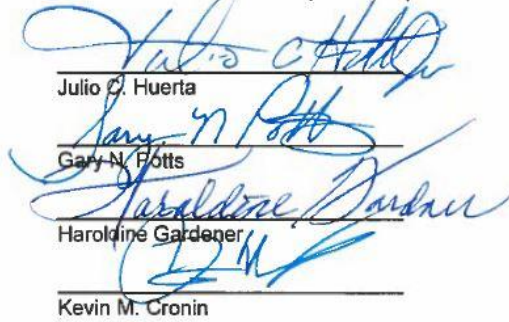 Julio C Huerta
Julio C. Huerta
Gary N Potts
Gary N. Potts
Haroldine Gardner
Haroldine Gardener
Kevin M. Cronin